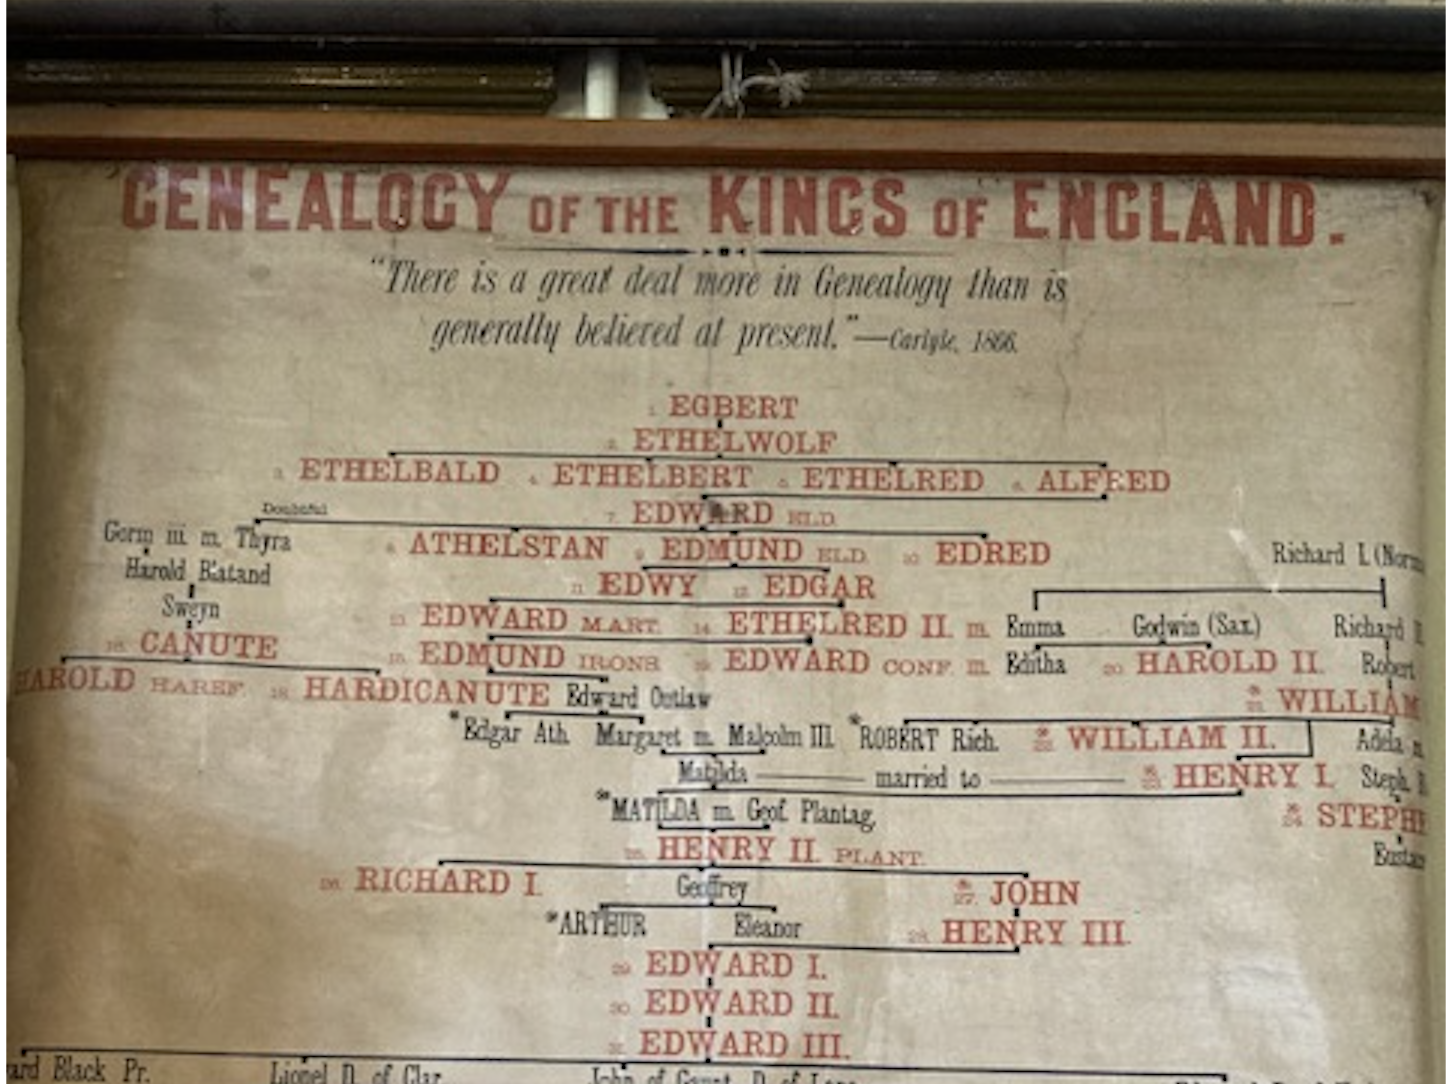 GENEALOGY OF THE KINGS OF ENGLAND.
"There is a great deal more in Genealogy than is
generally believed at present."—Carlyle, 1866.
1. EGBERT
2. ETHELWOLF
3. ETHELBALD 4. ETHELBERT 5. ETHELRED 6. ALFRED
Doubtful 7. EDWARD ELD.
Gorm iii. m. Thyra 8. ATHELSTAN 9. EDMUND ELD. 10. EDRED Richard I. (Norm
Harold Blatand 11. EDWY 12. EDGAR
Sweyn 13. EDWARD MART. 14. ETHELRED II. m. Emma Godwin (Sax.) Richard II.
16. CANUTE 15. EDMUND IRONS 19. EDWARD CONF. m. Editha 20. HAROLD II. Robert
HAROLD HAREF. 18. HARDICANUTE Edward Outlaw 21. WILLIAM
*Edgar Ath. Margaret m. Malcolm III. *ROBERT Rich. 22. WILLIAM II. Adela m.
Matilda married to 23. HENRY I. Steph. B
*MATILDA m. Geof. Plantag. 24. STEPHE
25. HENRY II. PLANT. Eustac
26. RICHARD I. Geoffrey 27. JOHN
*ARTHUR Eleanor 28. HENRY III.
29. EDWARD I.
30. EDWARD II.
31. EDWARD III.
ard Black Pr. Lionel D. of Clar. John of Gaunt, D. of Lanc